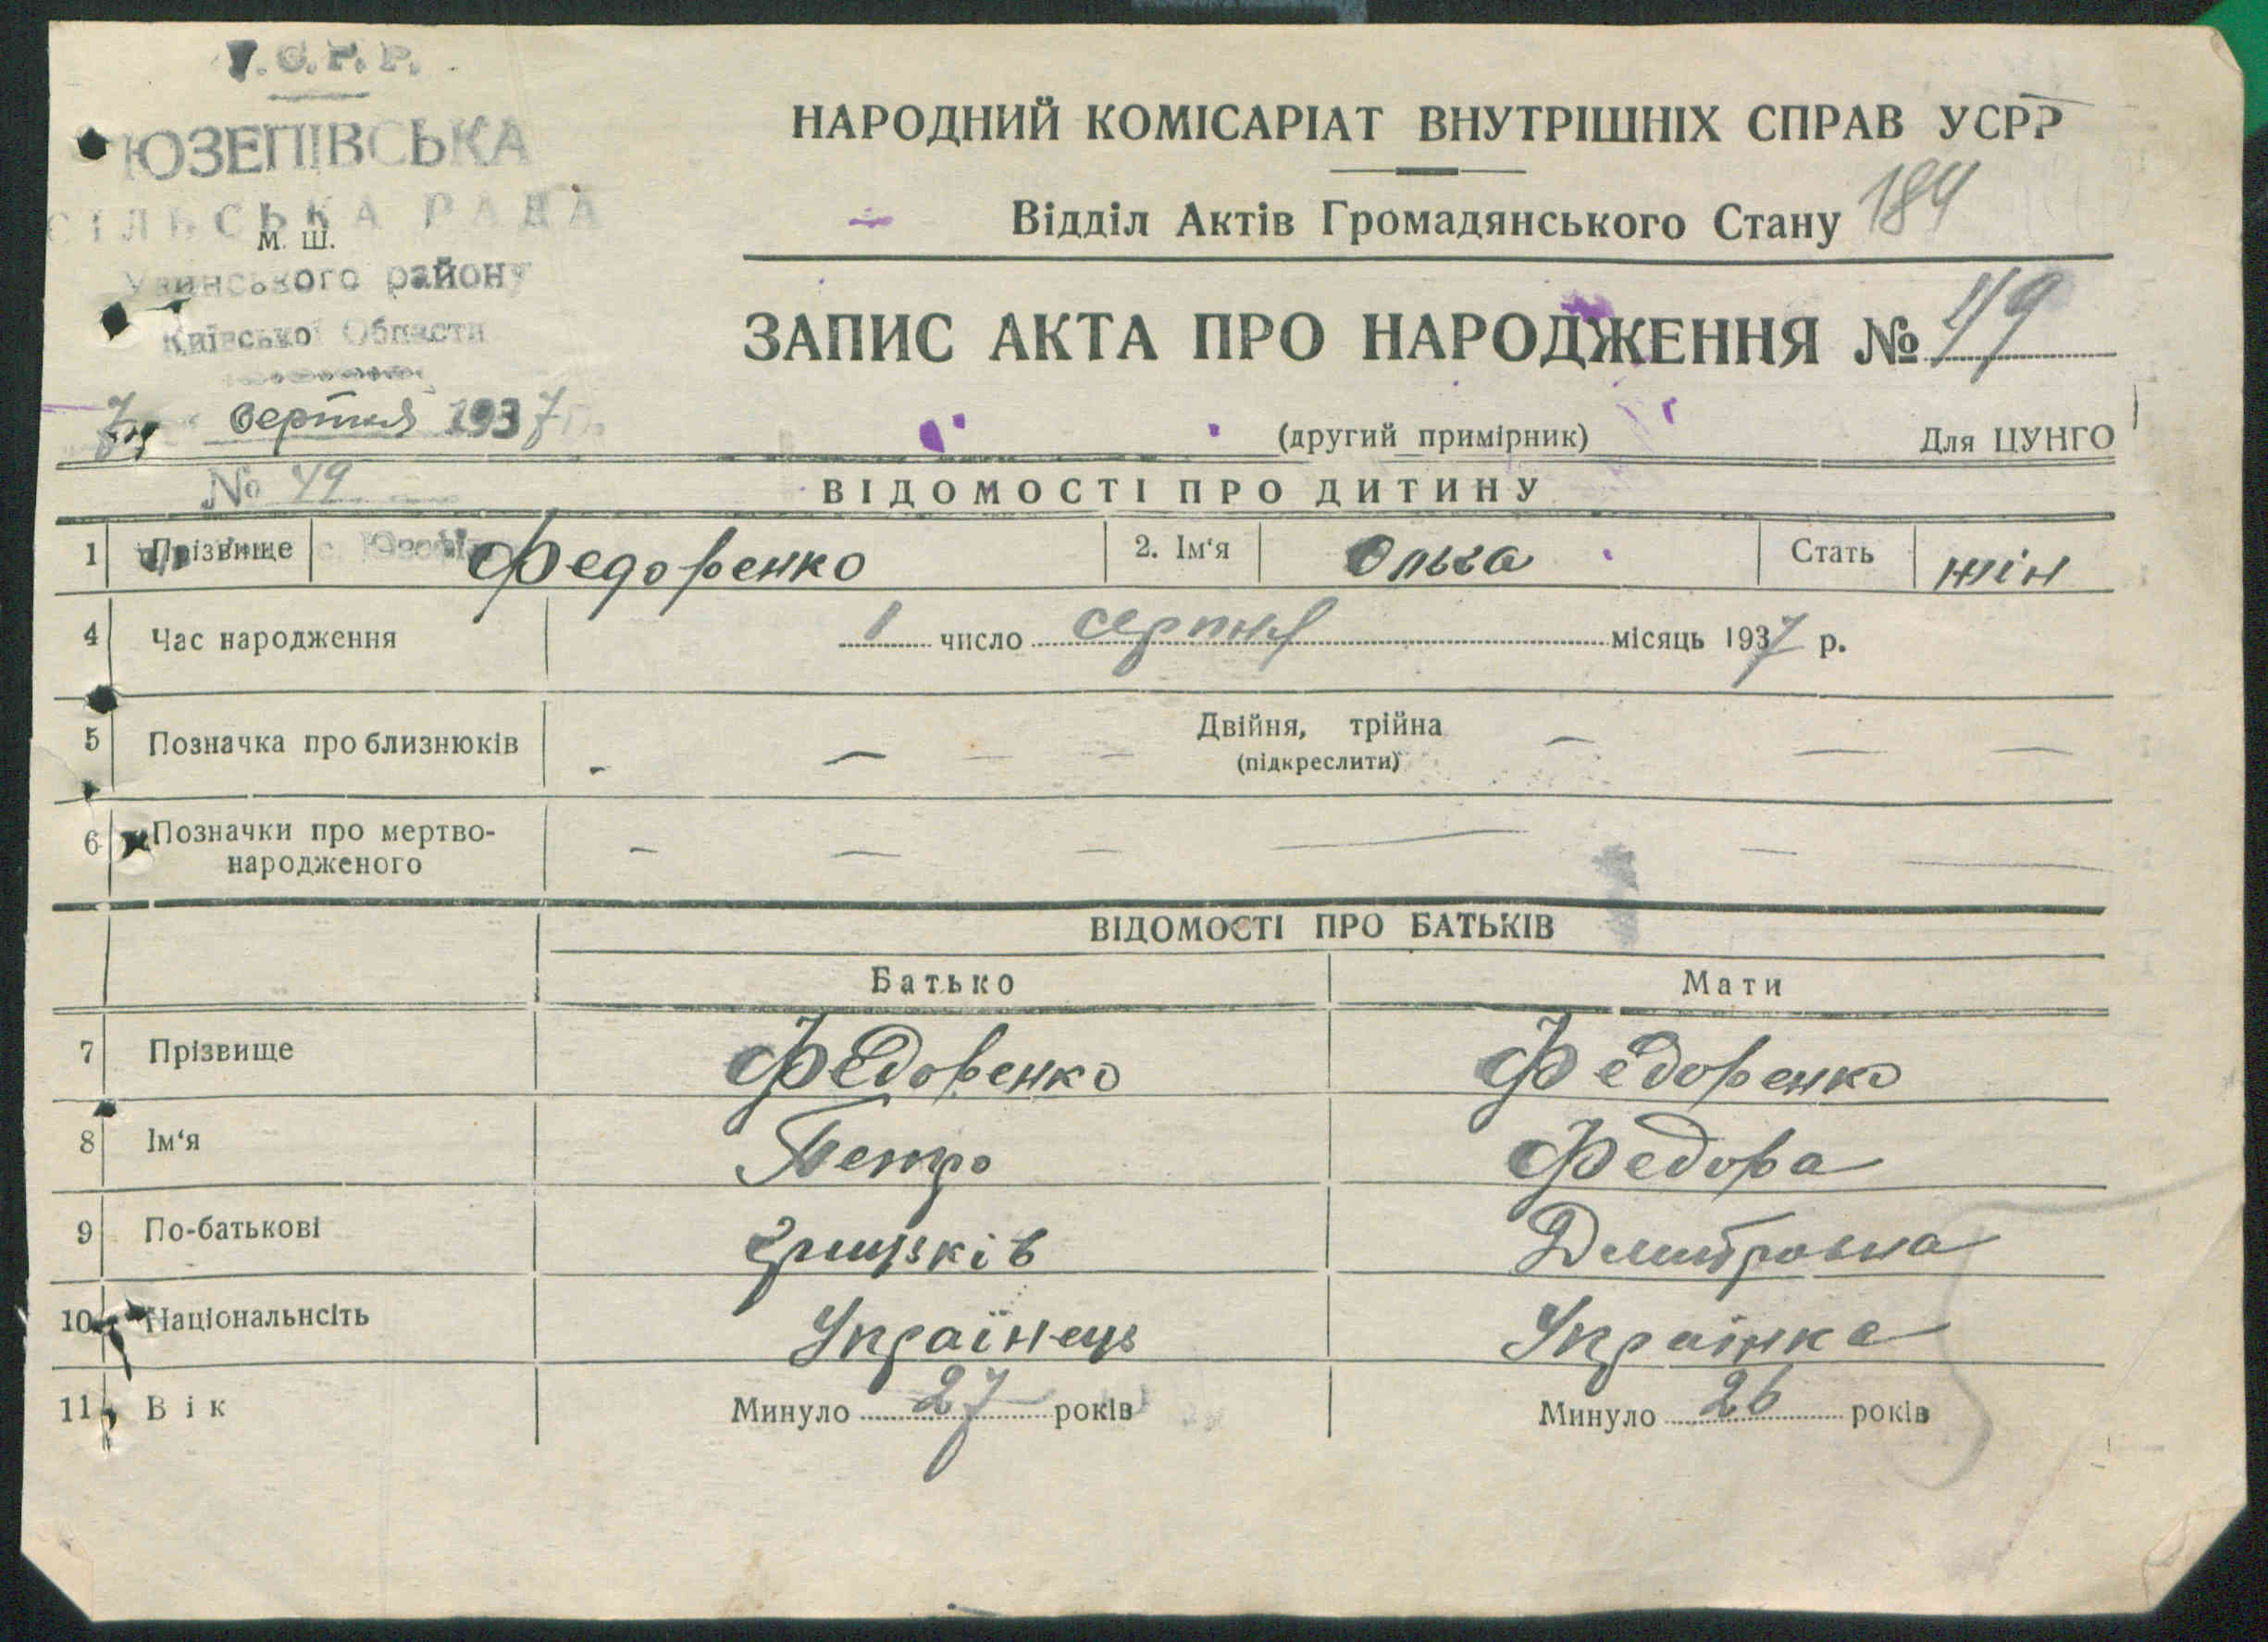 У.С.Р.Р.
ЮЗЕПІВСЬКА
СІЛЬСЬКА РАДА
М. Ш.
району
Київської Области
7 серпня 1937
№ 49
НАРОДНИЙ КОМІСАРІАТ ВНУТРІШНІХ СПРАВ УСРР
Відділ Актів Громадянського Стану 184
ЗАПИС АКТА ПРО НАРОДЖЕННЯ № 49
(другий примірник) Для ЦУНГО
ВІДОМОСТІ ПРО ДИТИНУ
1 Прізвище Федоренко 2. Ім'я Ольга Стать жін
4 Час народження 1 число серпня місяць 1937 р.
5 Позначка про близнюків — Двійня, трійна —
(підкреслити)
6 Позначки про мертво-
народженого —
ВІДОМОСТІ ПРО БАТЬКІВ
Батько Мати
7 Прізвище Федоренко Федоренко
8 Ім'я Петро Федора
9 По-батькові Грицьків Дмитровна
10 Національнсіть Українець Українка
11 Вік Минуло 27 років Минуло 26 років